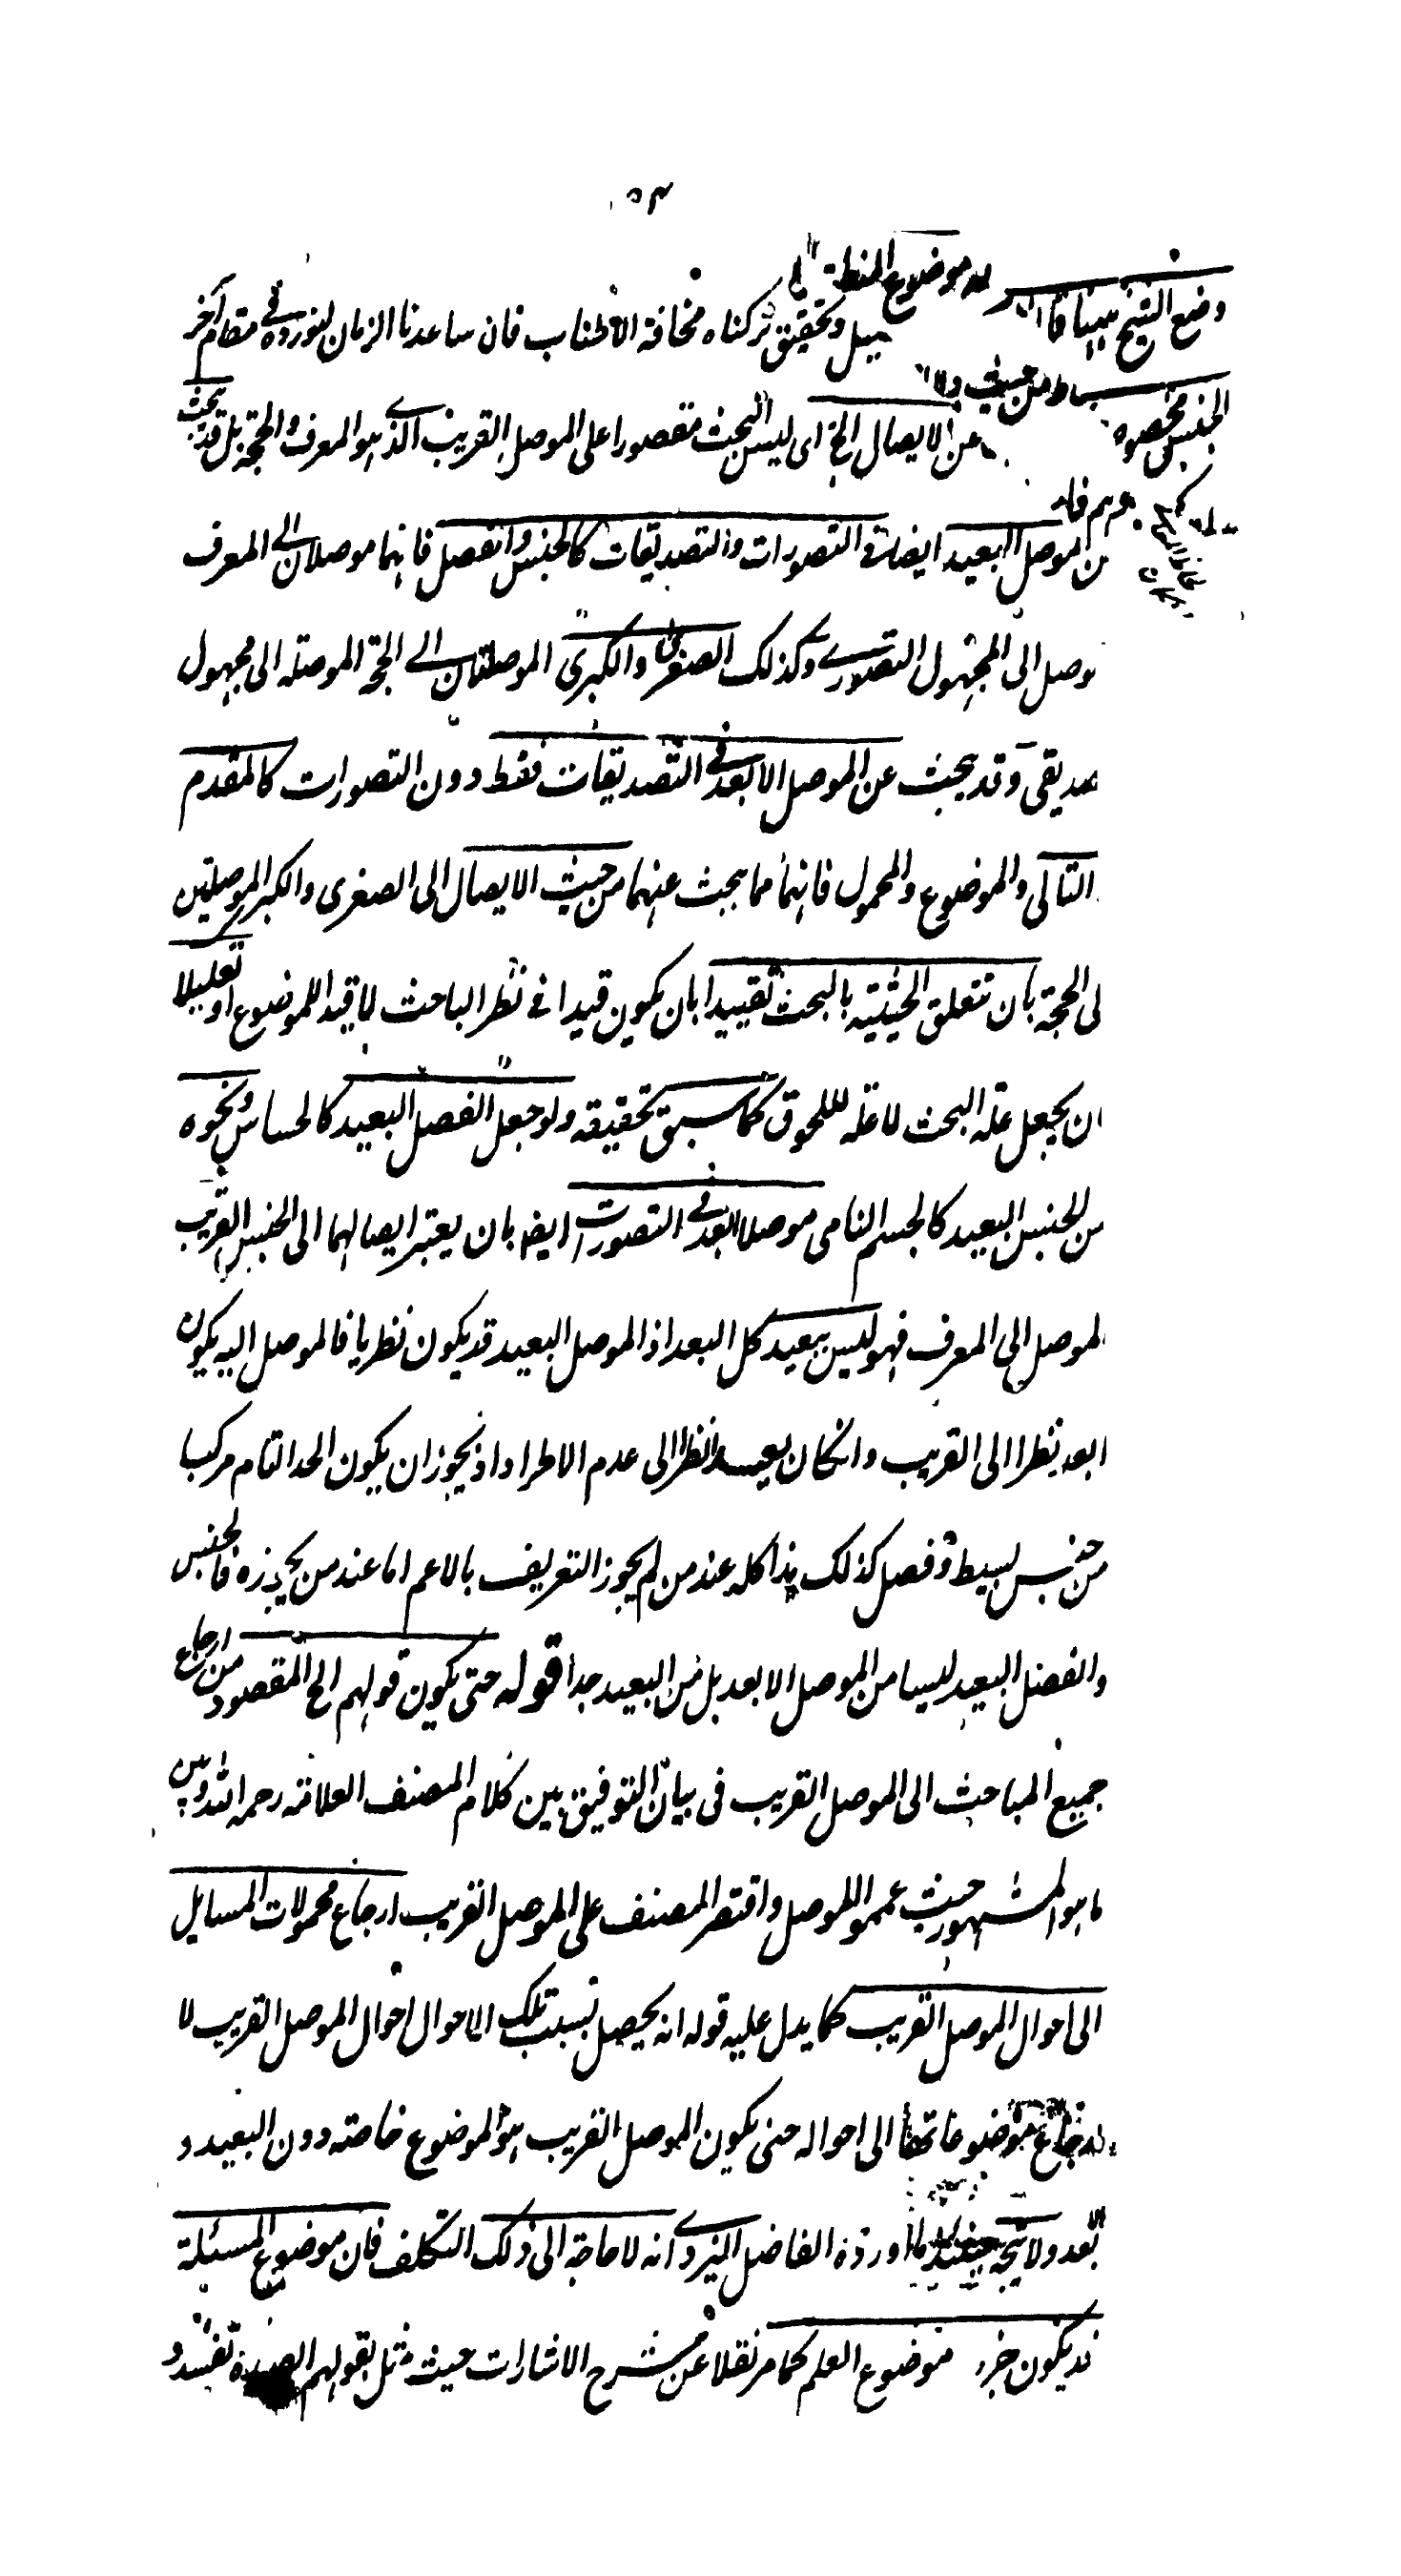 ٥٣
موضوع المنطق
وضع الشيخ
وتحقيق تركناه مخافة الاطناب فان ساعدنا الزمان لنورده في مقام آخر
من حيث
الجنس مخصوص
عن الايصال الخ اى ليس البحث مقصورا على الموصل القريب الذى هو المعرف والحجة بل قد يبحث
عن الموصل البعيد ايضا في التصورات والتصديقات كالجنس والفصل فانهما موصلان الى المعرف
الموصل الى المجهول التصورى وكذلك الصغرى والكبرى الموصلتان الى الحجة الموصلة الى مجهول
تصديقى وقد يبحث عن الموصل الابعد في التصديقات فقط دون التصورات كالمقدم
والتالى والموضوع والمحمول فانهما مما يبحث عنهما من حيث الايصال الى الصغرى والكبرى الموصلتين
الى الحجة بان تتعلق الحيثية بالبحث تقييدا بان يكون قيدا في نظر الباحث لا قيد الموضوع او تعليلا
ان يجعل علة البحث لا علة للحوق كما سبق تحقيقه ولو جعل الفصل البعيد كالحساس ونحوه
من الجنس البعيد كالجسم النامى موصلا ابعد في التصورات ايضا بان يعتبر ايصالهما الى الجنس القريب
الموصل الى المعرف فهو ليس ببعيد كل البعد اذ الموصل البعيد قد يكون نظريا فالموصل اليه يكون
ابعد نظرا الى القريب وانكان بعيدا نظرا الى عدم الاطراد اذ يجوز ان يكون الحد التام مركبا
من جنس بسيط وفصل كذلك هذا كله عند من لم يجوز التعريف بالاعم اما عند من يجوزه فالجنس
والفصل البعيد ليسا من الموصل الابعد بل من البعيد جدا قوله حتى يكون قولهم الخ المقصود من ارجاع
جميع المباحث الى الموصل القريب في بيان التوفيق بين كلام المصنف العلامة رحمه الله وبين
ما هو المشهور حيث عمموا الموصل واقتصر المصنف على الموصل القريب ارجاع محمولات المسايل
الى احوال الموصل القريب كما يدل عليه قوله انه يحصل بسبب تلك الاحوال احوال الموصل القريب لا
ارجاع موضوعاتها الى احواله حتى يكون الموصل القريب هو الموضوع خاصة دون البعيد و
الابعد ولا يتجه حينئذ ما اورده الفاضل اليزدى انه لا حاجة الى ذلك التكلف فان موضوع المسئلة
قد يكون جزء موضوع العلم كما مر نقلا عن شرح الاشارات حيث مثل بقولهم الصورة تفسد و